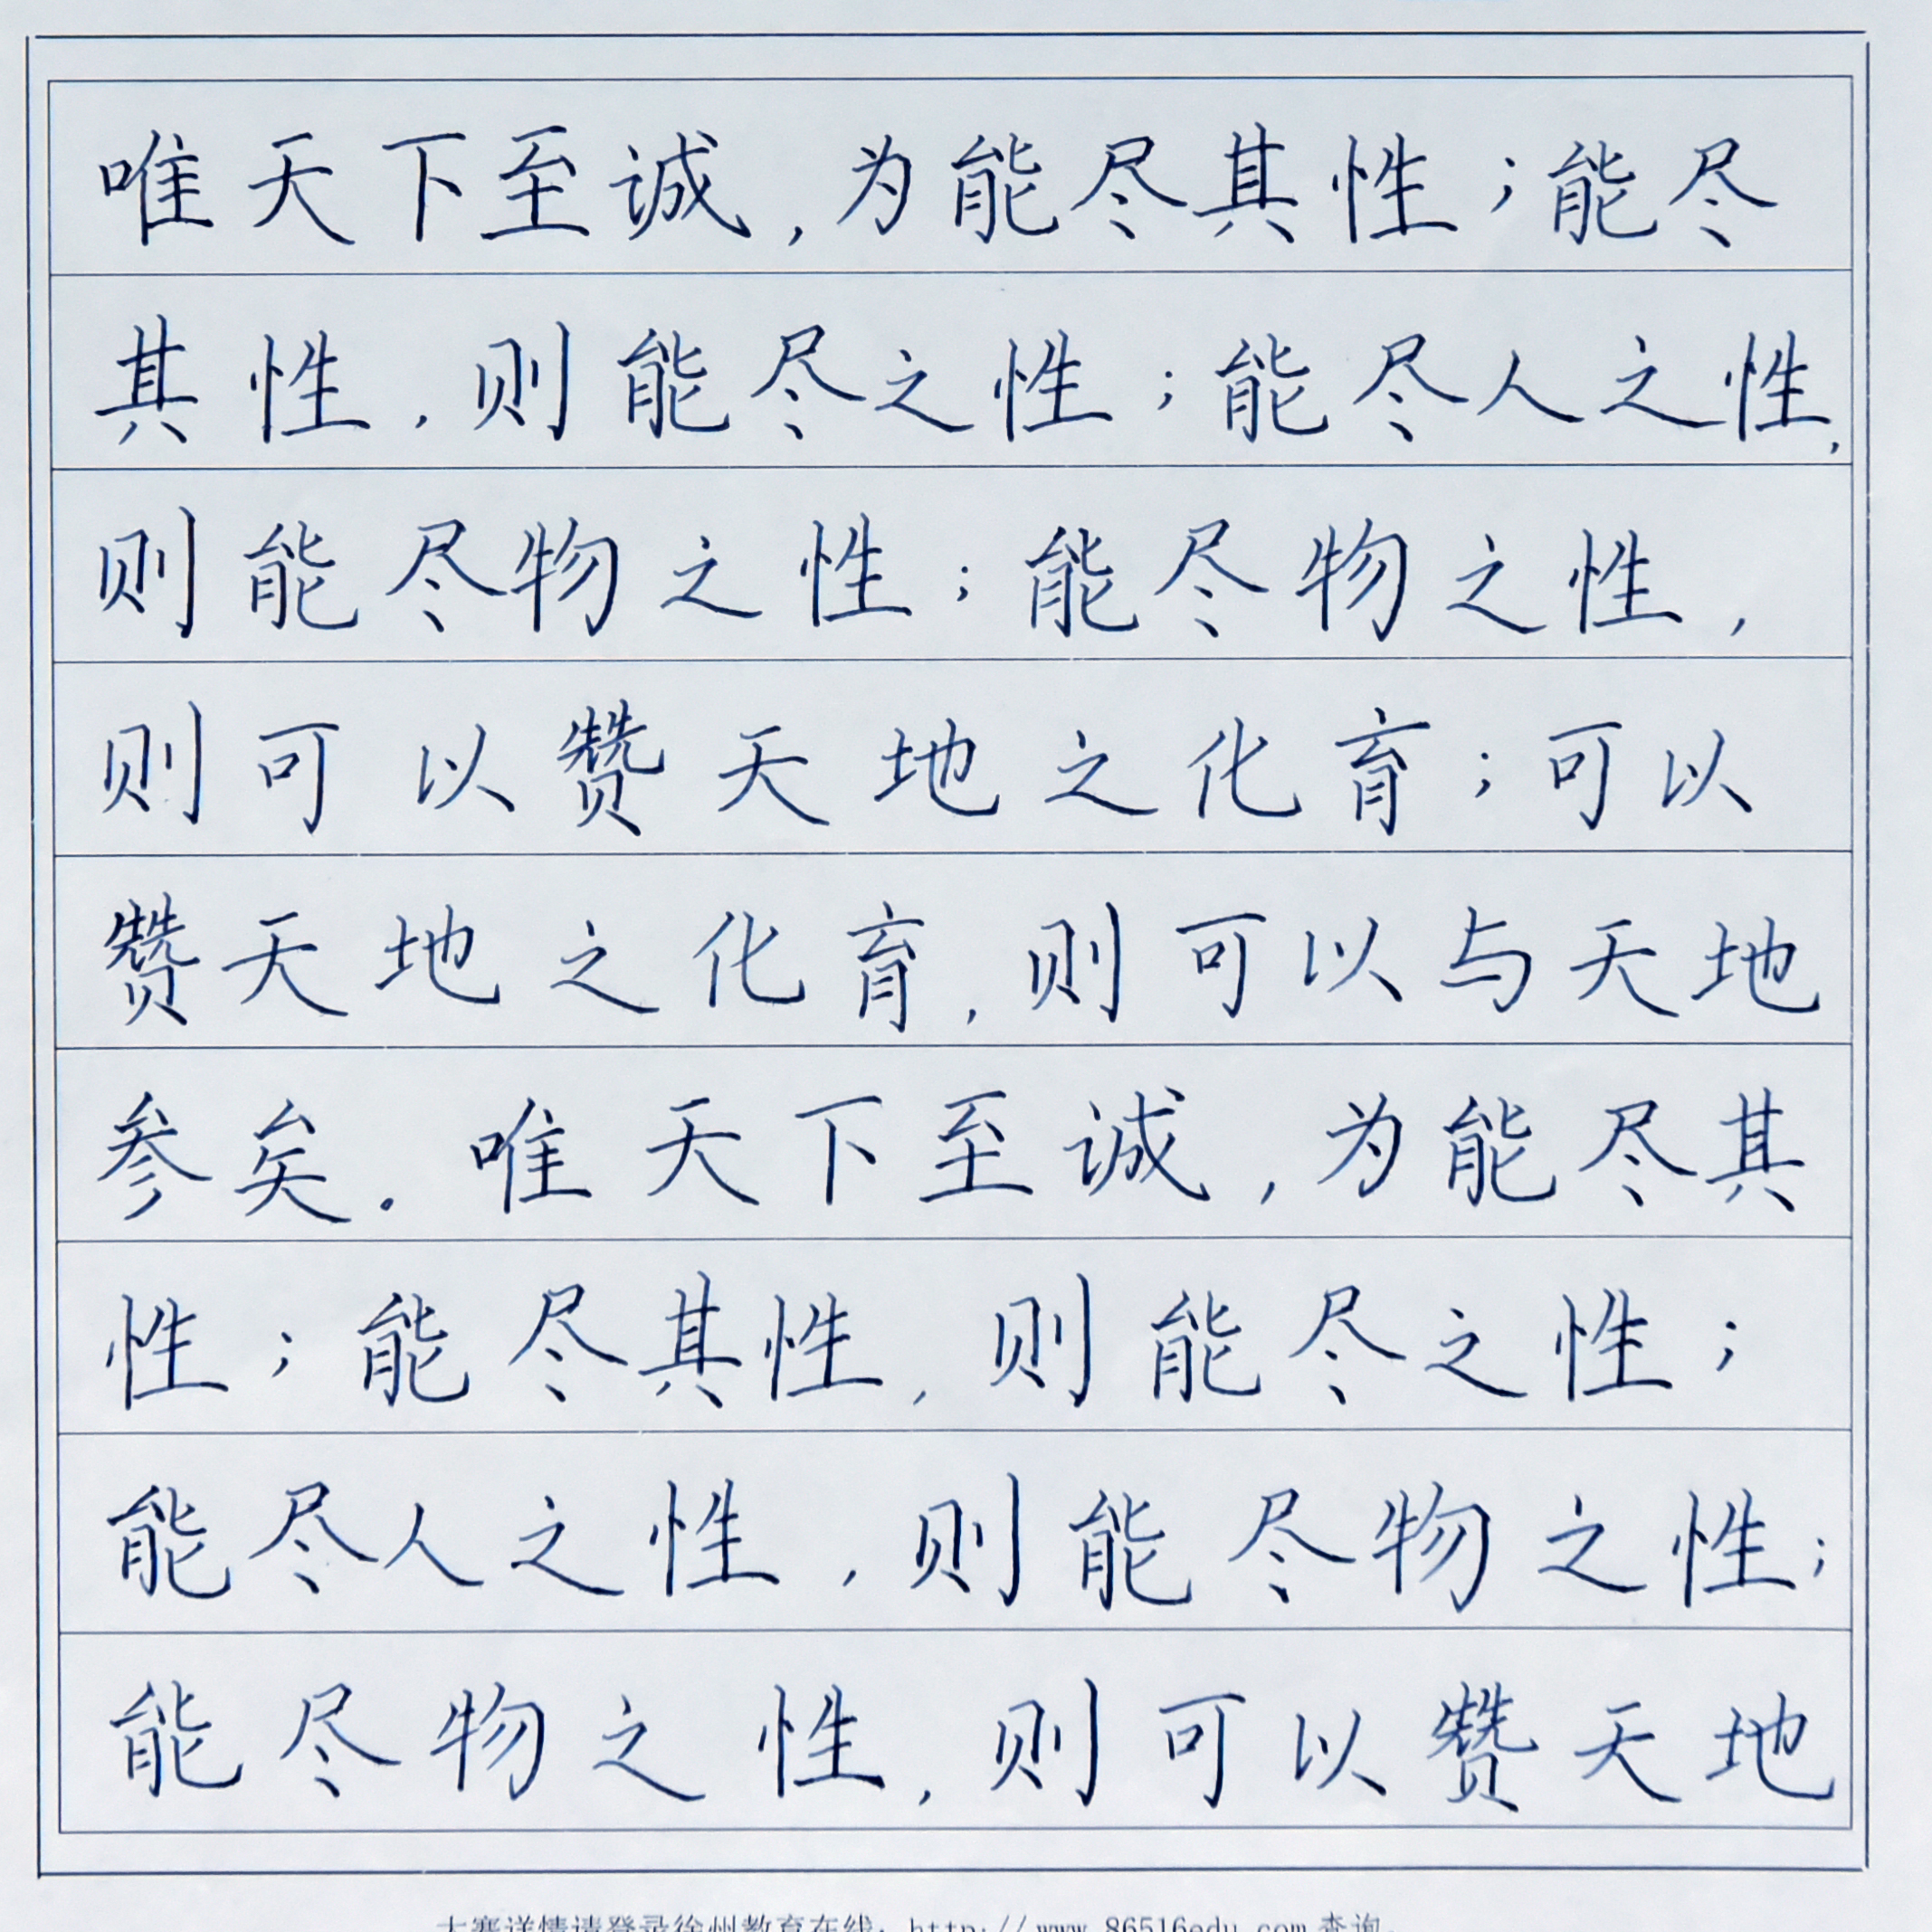 唯天下至诚，为能尽其性；能尽
其性，则能尽之性；能尽人之性，
则能尽物之性；能尽物之性，
则可以赞天地之化育；可以
赞天地之化育，则可以与天地
参矣。唯天下至诚，为能尽其
性；能尽其性，则能尽之性；
能尽人之性，则能尽物之性；
能尽物之性，则可以赞天地
大赛详情请登录徐州教育在线：http://www.86516edu.com查询。